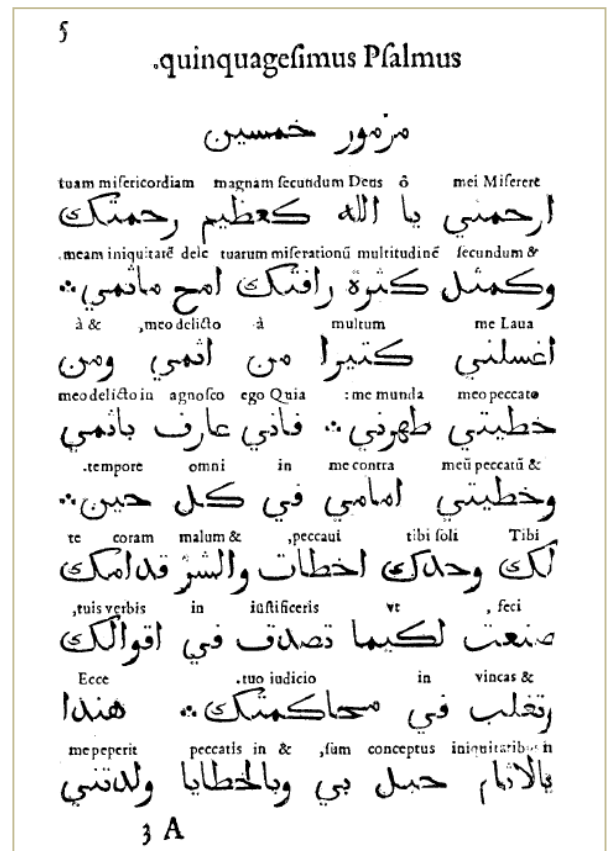 5
.quinquageſimus Pſalmus
مزمور خمسين
tuam miſericordiam magnam ſecundum Deus ô mei Miſerere
ارحمني يا الله كعظيم رحمتك
.meam iniquitatē dele tuarum miſerationū multitudinē ſecundum &
وكمثل كثرة رافتك امح ماثمي ⁖
à & ,meo delicto à multum me Laua
اغسلني كثيرا من اثمي ومن
meo delicto in agnoſco ego Quia :me munda meo peccato
خطيتي طهرني ⁖ فاني عارف باثمي
.tempore omni in me contra meū peccatū &
وخطيتي امامي في كل حين ⁖
te coram malum & ,peccaui tibi ſoli Tibi
لك وحدك اخطات والشر قدامك
,tuis verbis in iuſtificeris vt , feci
صنعت لكيما تصدق في اقوالك
Ecce .tuo iudicio in vincas &
وتغلب في محاكمتك ⁖ هندا
me peperit peccatis in & ,ſum conceptus iniquitatibus in
بالاثام حبل بي وبالخطايا ولدتني
3 A